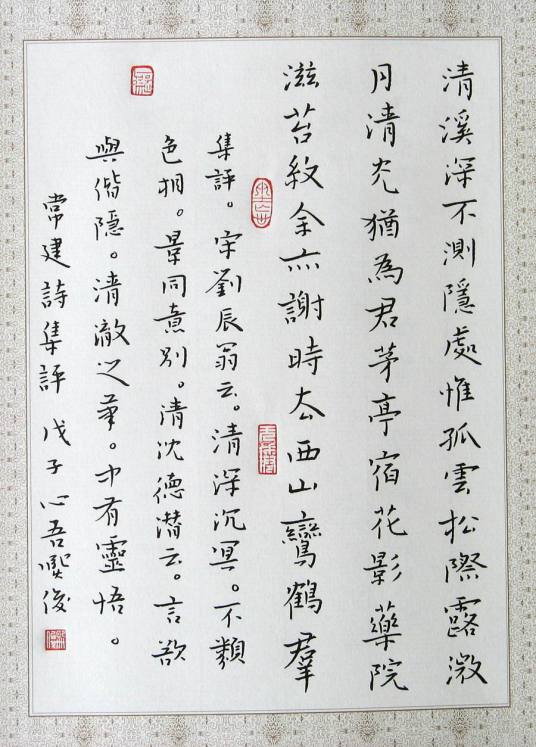 清溪深不測隱處惟孤雲松際露微
月清光猶為君茅亭宿花影藥院
滋苔紋余亦謝時去西山鸞鶴羣
集評。宋劉辰翁云。清深沉冥。不類
色相。景同意別。清沈德潛云。言欲
與偕隱。清澈之筆。中有靈悟。
常建詩集評 戊子 心吾 俊